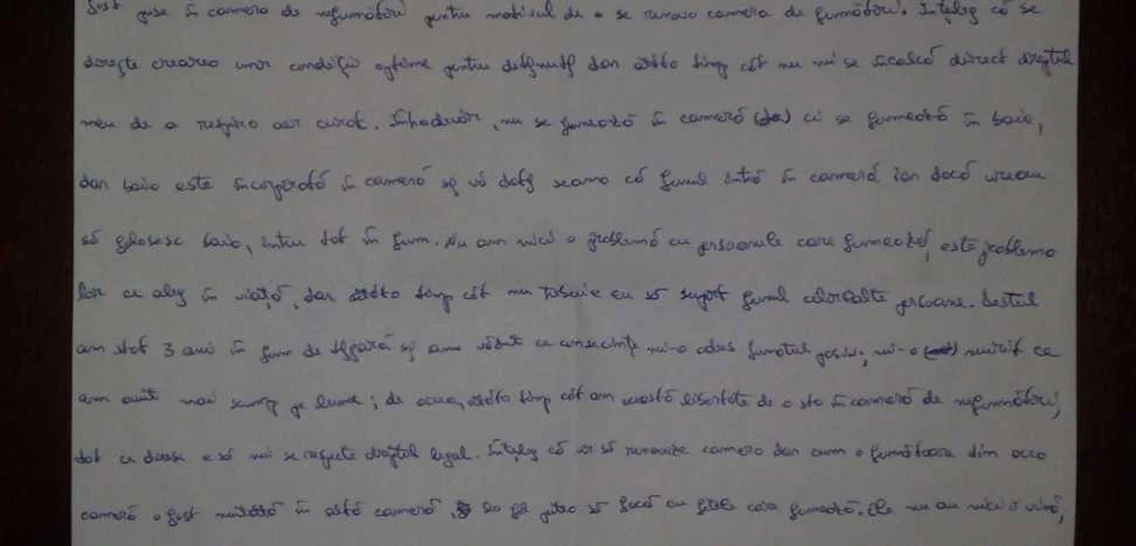 fost puse în camera de nefumători pentru motivul de a se renova camera de fumători. Înțeleg că se
dorește crearea unor condiții optime pentru deținuți dar atâta timp cât nu mi se încalcă direct dreptul
meu de a respira aer curat. Într-adevăr, nu se fumează în cameră ci se fumează în baie,
dar baia este incorporată în cameră și vă dați seama că fumul intră în cameră iar dacă vreau
să folosesc baia, intru tot în fum. Nu am nici o problemă cu persoanele care fumează, este problema
lor ce aleg în viață, dar atâta timp cât nu trebuie eu să suport fumul celorlalte persoane. Destul
am stat 3 ani în fum de țigară și am văzut ce consecințe mi-a adus fumatul pasiv; mi-a murit ce
am avut mai scump pe lume; de aceea, atâta timp cât am această libertate de a sta în cameră de nefumători,
tot ce doresc e să mi se respecte dreptul legal. Înțeleg că vor să renoveze camera dar cum o fumătoare din acea
cameră a fost mutată în altă cameră, la fel putea să facă cu fetele care fumează. Ele nu au nici o vină,